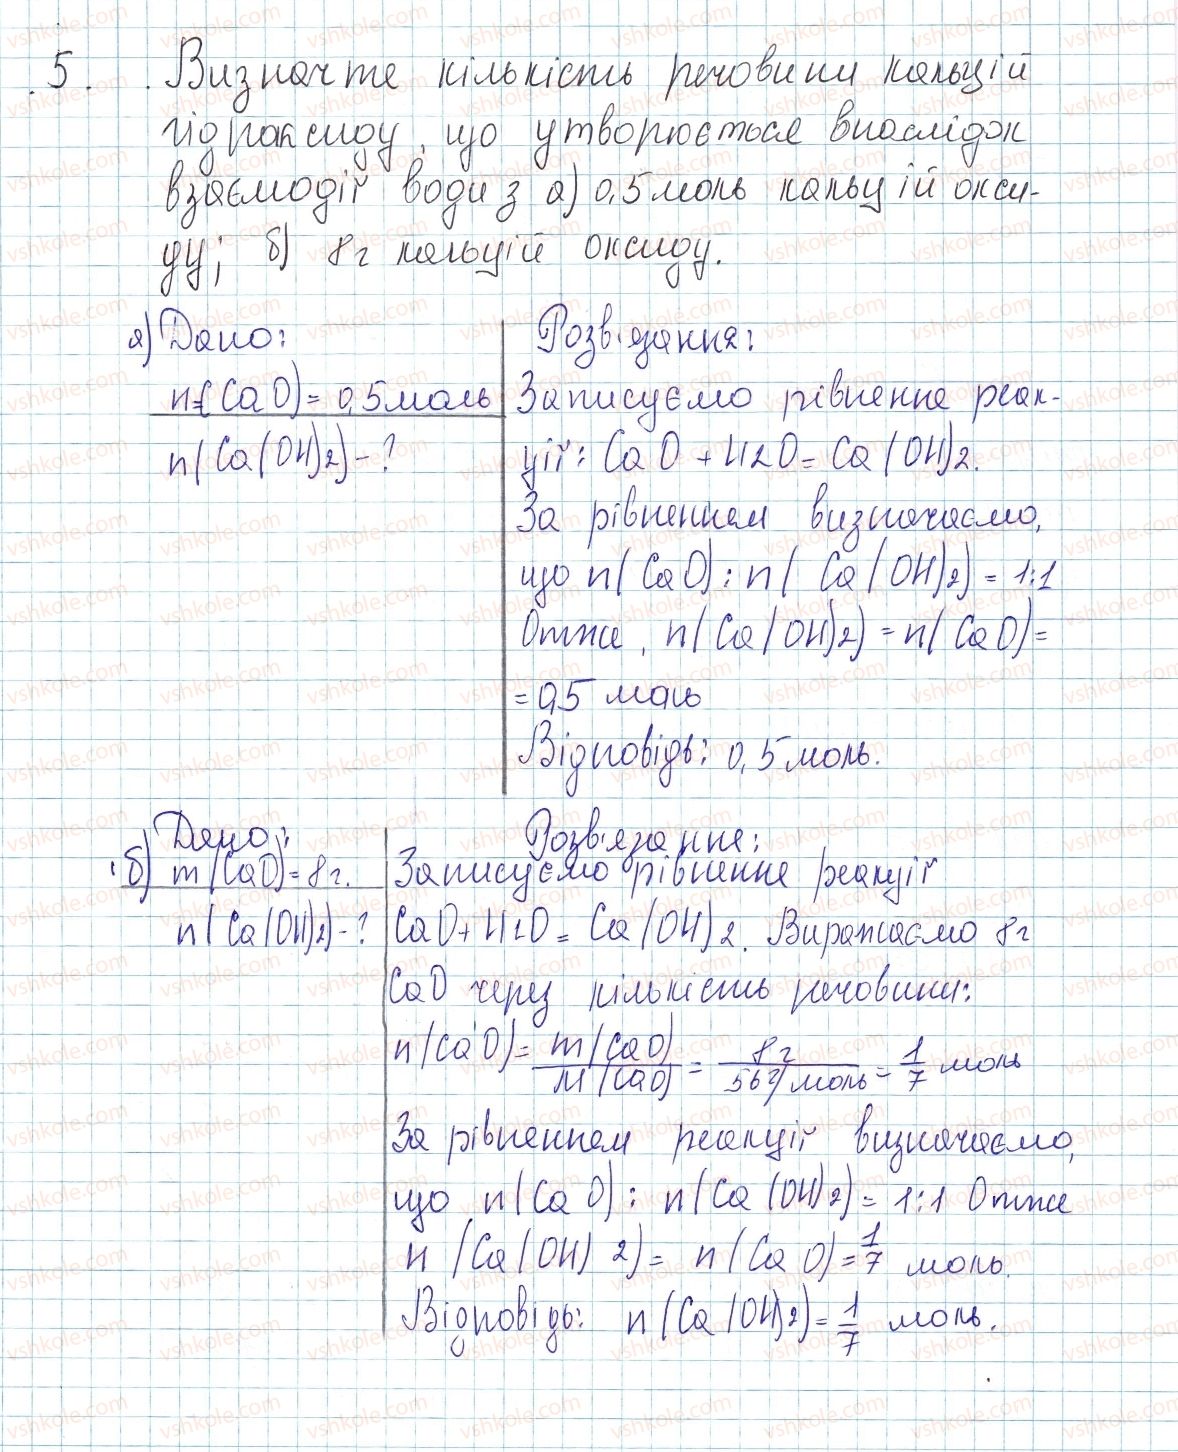 5. Визначте кількість речовини кальцій
гідроксиду, що утворюється внаслідок
взаємодії води з а) 0,5 моль кальцій окси-
ду; б) 8 г кальцій оксиду.
а) Дано:
n(CaO) = 0,5 моль
n(Ca(OH)2) - ?
Розв'язання:
Записуємо рівняння реак-
ції: CaO + H2O = Ca(OH)2.
За рівнянням визначаємо,
що n(CaO) : n(Ca(OH)2) = 1:1
Отже, n(Ca(OH)2) = n(CaO) =
= 0,5 моль
Відповідь: 0,5 моль.
б) Дано:
m(CaO) = 8 г.
n(Ca(OH)2) - ?
Розв'язання:
Записуємо рівняння реакції
CaO + H2O = Ca(OH)2. Виражаємо 8 г
CaO через кількість речовини:
n(CaO) = m(CaO)/M(CaO) = 8 г/56 г/моль = 1/7 моль
За рівнянням реакції визначаємо,
що n(CaO) : n(Ca(OH)2) = 1:1 Отже
n(Ca(OH)2) = n(CaO) = 1/7 моль.
Відповідь: n(Ca(OH)2) = 1/7 моль.